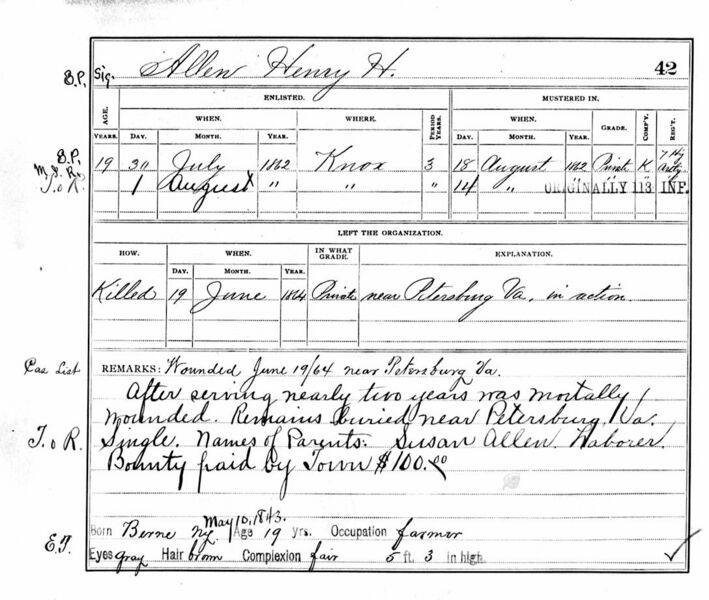 B.P. Sig. Allen Henry H. 42
AGE. ENLISTED. MUSTERED IN.
WHEN. WHERE. PERIOD YEARS. WHEN. GRADE. COMP'Y. REG'T.
YEARS. DAY. MONTH. YEAR. DAY. MONTH. YEAR.
B.P. 19 30 July 1862 Knox 3 18 August 1862 Private K 7 Hy Arty
M.S.R.
T. o R. 1 August " " " 14 " " " "
ORIGINALLY 113 INF.
LEFT THE ORGANIZATION.
HOW. WHEN. IN WHAT GRADE. EXPLANATION.
DAY. MONTH. YEAR.
Killed 19 June 1864 Private near Petersburg Va, in action.
Cas List REMARKS: Wounded June 19/64 near Petersburg Va.
After serving nearly two years was mortally
wounded. Remains buried near Petersburg, Va.
T. o R. Single. Names of Parents. Susan Allen. Laborer.
Bounty paid by Town $100.00
May 10, 1843.
Born Berne Ny. Age 19 yrs. Occupation farmer
E.F. Eyes gray Hair brown Complexion fair 5 ft. 3 in high.